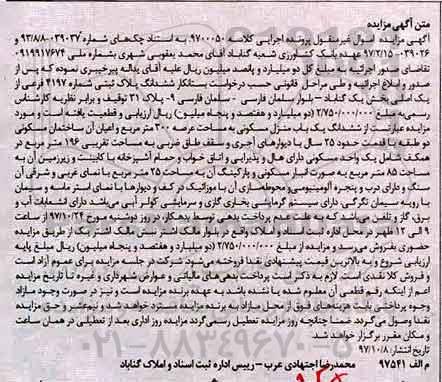 متن آگهی مزایده
آگهی مزایده اموال غیرمنقول پرونده اجرایی کلاسه ۹۷۰۰۰۵۰ به استناد چک‌های شماره ۰۳۹۰۳۷-۹۳/۸/۸
۰۳۹۰۳۶-۹۷/۲/۱۵ عهده بانک کشاورزی شعبه گناباد آقای محمد یعقوبی شهری بشماره ملی ۰۹۱۹۹۱۷۶۷۴
تقاضای صدور اجرائیه به مبلغ کل دو میلیارد و پانصد میلیون ریال علیه آقای یداله پیرخیبری نموده که پس از
صدور و ابلاغ اجرائیه و طی مراحل قانونی حسب درخواست بستانکار ششدانگ پلاک ثبتی شماره ۴۱۹۷ فرعی از
یک اصلی بخش یک گناباد – بلوار سلمان فارسی - سلمان فارسی ۹- پلاک ۳۱ توقیف و برابر نظریه کارشناس
رسمی به مبلغ ۲/۷۵۰/۰۰۰/۰۰۰ (دو میلیارد و هفتصد و پنجاه میلیون) ریال ارزیابی و قطعیت یافته است و مورد
مزایده عبارتست از ششدانگ یک باب منزل مسکونی به مساحت عرصه ۳۰۰ متر مربع و اعیان آن ساختمان مسکونی
دو طبقه با قدمت حدود ۲۵ سال با دیوارهای آجری و سقف طاق ضربی به مساحت تقریبی ۱۹۶ متر مربع در
همکف شامل یک واحد مسکونی دارای هال و پذیرایی و اتاق خواب و حمام آشپزخانه با کابینت و زیرزمین آن به
مساحت ۸۵ متر مربع به صورت انبار مسکونی و پارکینگ آن به مساحت ۲۵ متر مربع با نمای غربی و شرقی آن
سنگ و دارای درب و پنجره آلومینیومی و محوطه‌سازی آن با موزائیک در کف و دیوارها با نمای استر ماسه و سیمان
با رویه سیمان تگرگی، دارای سیستم گرمایشی بخاری گازی و سرمایشی کولر آبی می‌باشد دارای انشعابات آب و
برق، گاز و تلفن می‌باشد که به علت عدم پرداخت بدهی توسط بدهکار، در روز دوشنبه مورخ ۹۷/۱۰/۲۴ از ساعت
۹ الی ۱۲ ظهر در محل اداره ثبت اسناد و املاک واقع در بلوار مالک اشتر نبش مالک اشتر یک از طریق مزایده
حضوری بفروش می‌رسد و مزایده از مبلغ ۲/۷۵۰/۰۰۰/۰۰۰ (دو میلیارد و هفتصد و پنجاه میلیون) ریال مبلغ پایه
ارزیابی شروع و به بالاترین قیمت پیشنهادی نقدا فروخته می‌شود شرکت در جلسه مزایده برای عموم آزاد است
و فروش کلا نقدی است. لازم به ذکر است پرداخت بدهی‌های مالیاتی و عوارض شهرداری و غیره تا تاریخ مزایده
اعم از اینکه رقم قطعی آن معلوم شده یا نشده باشد به عهده برنده مزایده است و نیز در صورت وجود مازاد
وجوه پرداختی بابت هزینه‌های فوق از محل مازاد به برنده مزایده مسترد خواهد شد و نیم‌عشر و حق مزایده
نقدا وصول می‌گردد ضمنا چنانچه روز مزایده تعطیل رسمی گردد مزایده روز اداری بعد از تعطیلی در همان ساعت
و مکان مقرر برگزار خواهد شد.
تاریخ انتشار: ۹۷/۱۰/۸
م الف ۹۷۵۴۱ محمدرضا اجتهادی عرب – رییس اداره ثبت اسناد و املاک گناباد
۰۲۱-۸۸۳۴۹۶۷۰